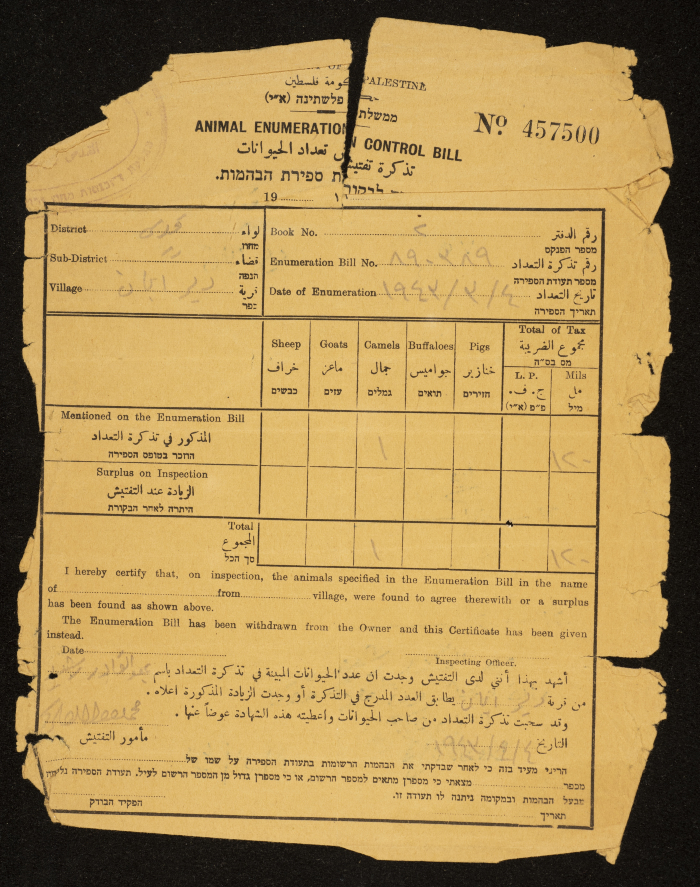 OF PALESTINE
ومة فلسطين
ממשלת פלשתינה (א״י)
Nº 457500
ANIMAL ENUMERATION CONTROL BILL
تذكرة تفتيش تعداد الحيوانات
ספירת הבהמות.
19
District لواء
מחוז
Sub-District قضاء
הנפה
Village دير قرية
כפר
Book No. ٢ رقم الدفتر
מספר הפנקס
Enumeration Bill No. ٨٩٠٣٨٩ رقم تذكرة التعداد
מספר תעודת הספירה
Date of Enumeration ١٩٤٣/٣/٤ تاريخ التعداد
תאריך הספירה
Sheep Goats Camels Buffaloes Pigs Total of Tax
خراف ماعز جمال جواميس خنازير مجموع الضريبة
כבשים עזים גמלים תואים חזירים מס בס״ה
L. P. Mils
ج. ف. مل
פ״פ (א״י) מיל
Mentioned on the Enumeration Bill
المذكور في تذكرة التعداد ١ ١٢٠
הוזכר בטופס הספירה
Surplus on Inspection
الزيادة عند التفتيش
היתרה לאחר הבקורת
Total
المجموع ١ ١٢٠
סך הכל
I hereby certify that, on inspection, the animals specified in the Enumeration Bill in the name
of from village, were found to agree therewith or a surplus
has been found as shown above.
The Enumeration Bill has been withdrawn from the Owner and this Certificate has been given
instead.
Date
Inspecting Officer.
أشهد بهذا أنني لدى التفتيش وجدت ان عدد الحيوانات المبينة في تذكرة التعداد باسم عبد القادر
من قرية دير يطابق العدد المدرج في التذكرة أو وجدت الزيادة المذكورة اعلاه .
وقد سحبت تذكرة التعداد من صاحب الحيوانات واعطيته هذه الشهادة عوضاً عنها .
التاريخ مأمور التفتيش
הריני מעיד בזה כי לאחר שבדקתי את הבהמות הרשומות בתעודת הספירה על שמו של
מכפר מצאתי כי מספרן מתאים למספר הרשום, או כי מספרן גדול מן המספר הרשום לעיל. תעודת הספירה
מבעל הבהמות ובמקומה ניתנה לו תעודה זו.
תאריך הפקיד הבודק